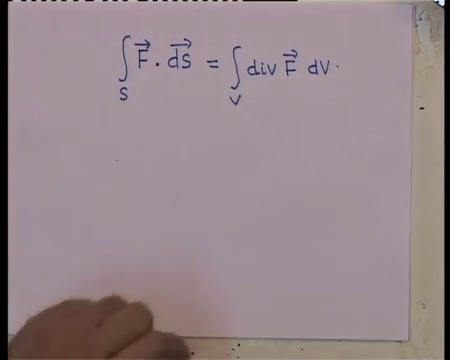 ∫_S F⃗ · d⃗S = ∫_V div F⃗ dV.